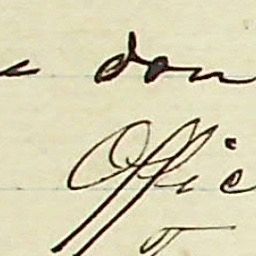 don
Offic